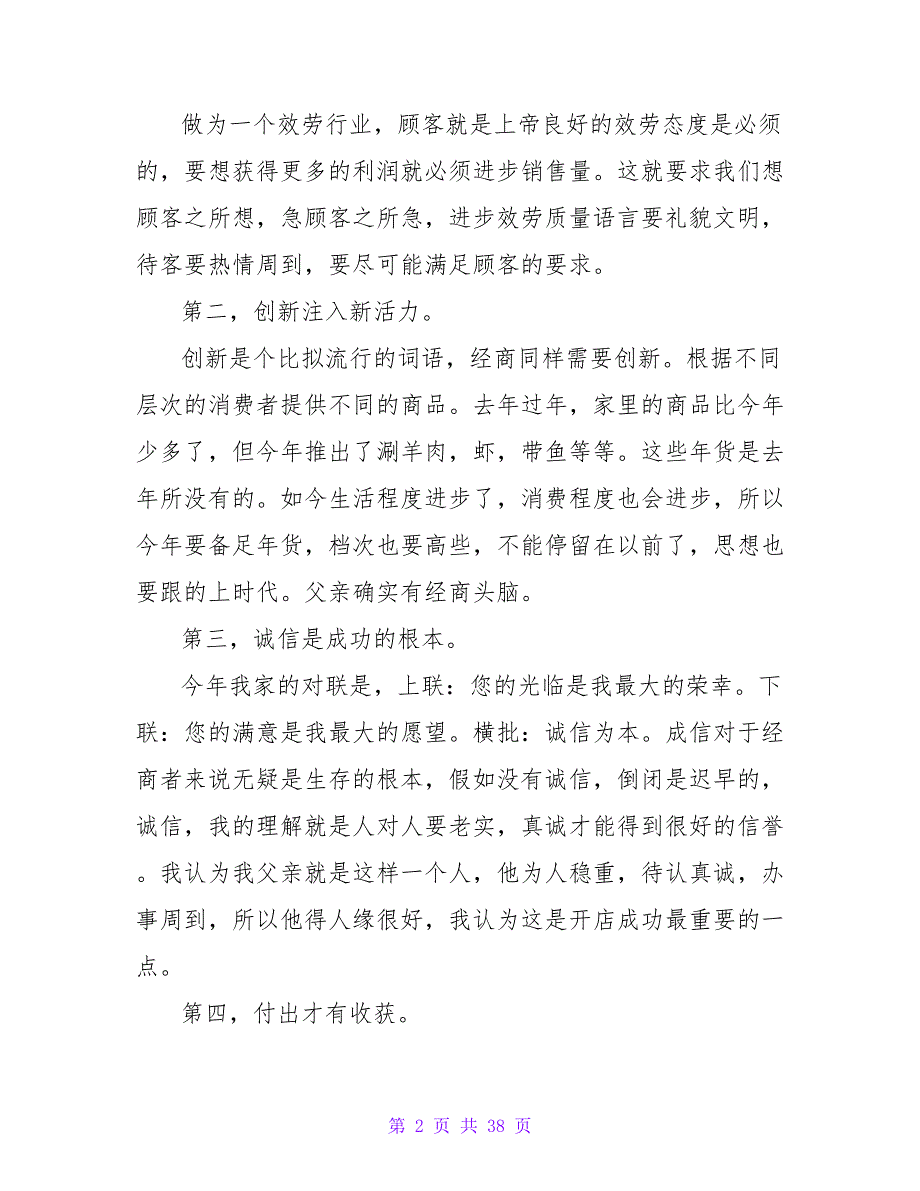 做为一个效劳行业，顾客就是上帝良好的效劳态度是必须
的，要想获得更多的利润就必须进步销售量。这就要求我们想
顾客之所想，急顾客之所急，进步效劳质量语言要礼貌文明，
待客要热情周到，要尽可能满足顾客的要求。
第二，创新注入新活力。
创新是个比拟流行的词语，经商同样需要创新。根据不同
层次的消费者提供不同的商品。去年过年，家里的商品比今年
少多了，但今年推出了涮羊肉，虾，带鱼等等。这些年货是去
年所没有的。如今生活程度进步了，消费程度也会进步，所以
今年要备足年货，档次也要高些，不能停留在以前了，思想也
要跟的上时代。父亲确实有经商头脑。
第三，诚信是成功的根本。
今年我家的对联是，上联：您的光临是我最大的荣幸。下
联：您的满意是我最大的愿望。横批：诚信为本。成信对于经
商者来说无疑是生存的根本，假如没有诚信，倒闭是迟早的，
诚信，我的理解就是人对人要老实，真诚才能得到很好的信誉
。我认为我父亲就是这样一个人，他为人稳重，待认真诚，办
事周到，所以他得人缘很好，我认为这是开店成功最重要的一
点。
第四，付出才有收获。
第 2 页 共 38 页